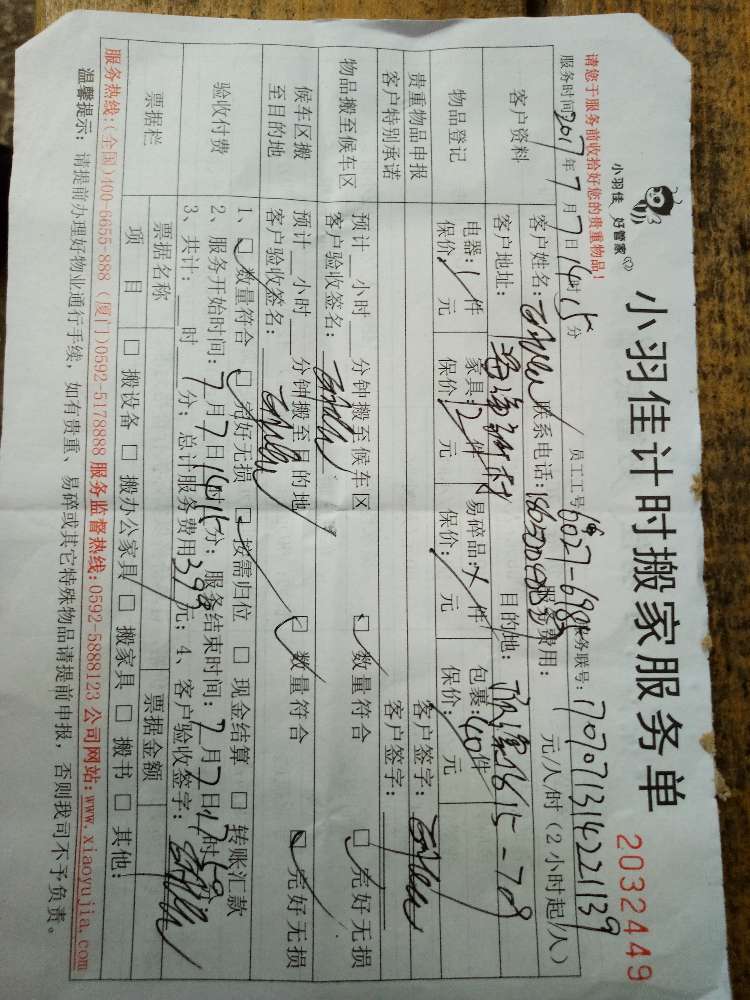 小羽佳 好管家
小羽佳计时搬家服务单
2032449
请您于服务前收拾好您的贵重物品！
服务时间2017年7月7日14时15分
员工工号 服务联号:
客户资料
客户姓名: 联系电话: 服务费用: 元/人/时（2小时起/人）
客户地址: 目的地:
物品登记
电器:1件 家具:2件 易碎品: 件 包裹:40件
保价: 元 保价: 元 保价: 元 保价: 元
贵重物品申报
客户特别承诺
客户签字:
客户签字:
物品搬至候车区
预计 小时 分钟搬至候车区
客户验收签名: 数量符合 完好无损
候车区搬
至目的地
预计 小时 分钟搬至目的地
客户验收签名: 数量符合 完好无损
验收付费
1、 数量符合 完好无损 按需归位 □ 现金结算 □ 转账汇款
2、服务开始时间: 7月7日14时15分; 服务结束时间: 7月7日17时 分
3、共计: 时 分; 总计服务费用 元; 4、客户验收签字:
票据栏
票据名称 票据金额
项 目 □ 搬设备 □ 搬办公家具 □ 搬家具 □ 搬书 □ 其他:
服务热线:(全国)400-6655-888 (厦门)0592-5178888 服务监督热线:0592-5888123 公司网站:www.xiaoyujia.com
温馨提示: 请提前办理好物业通行手续, 如有贵重、易碎或其它特殊物品请提前申报, 否则我司不予负责。